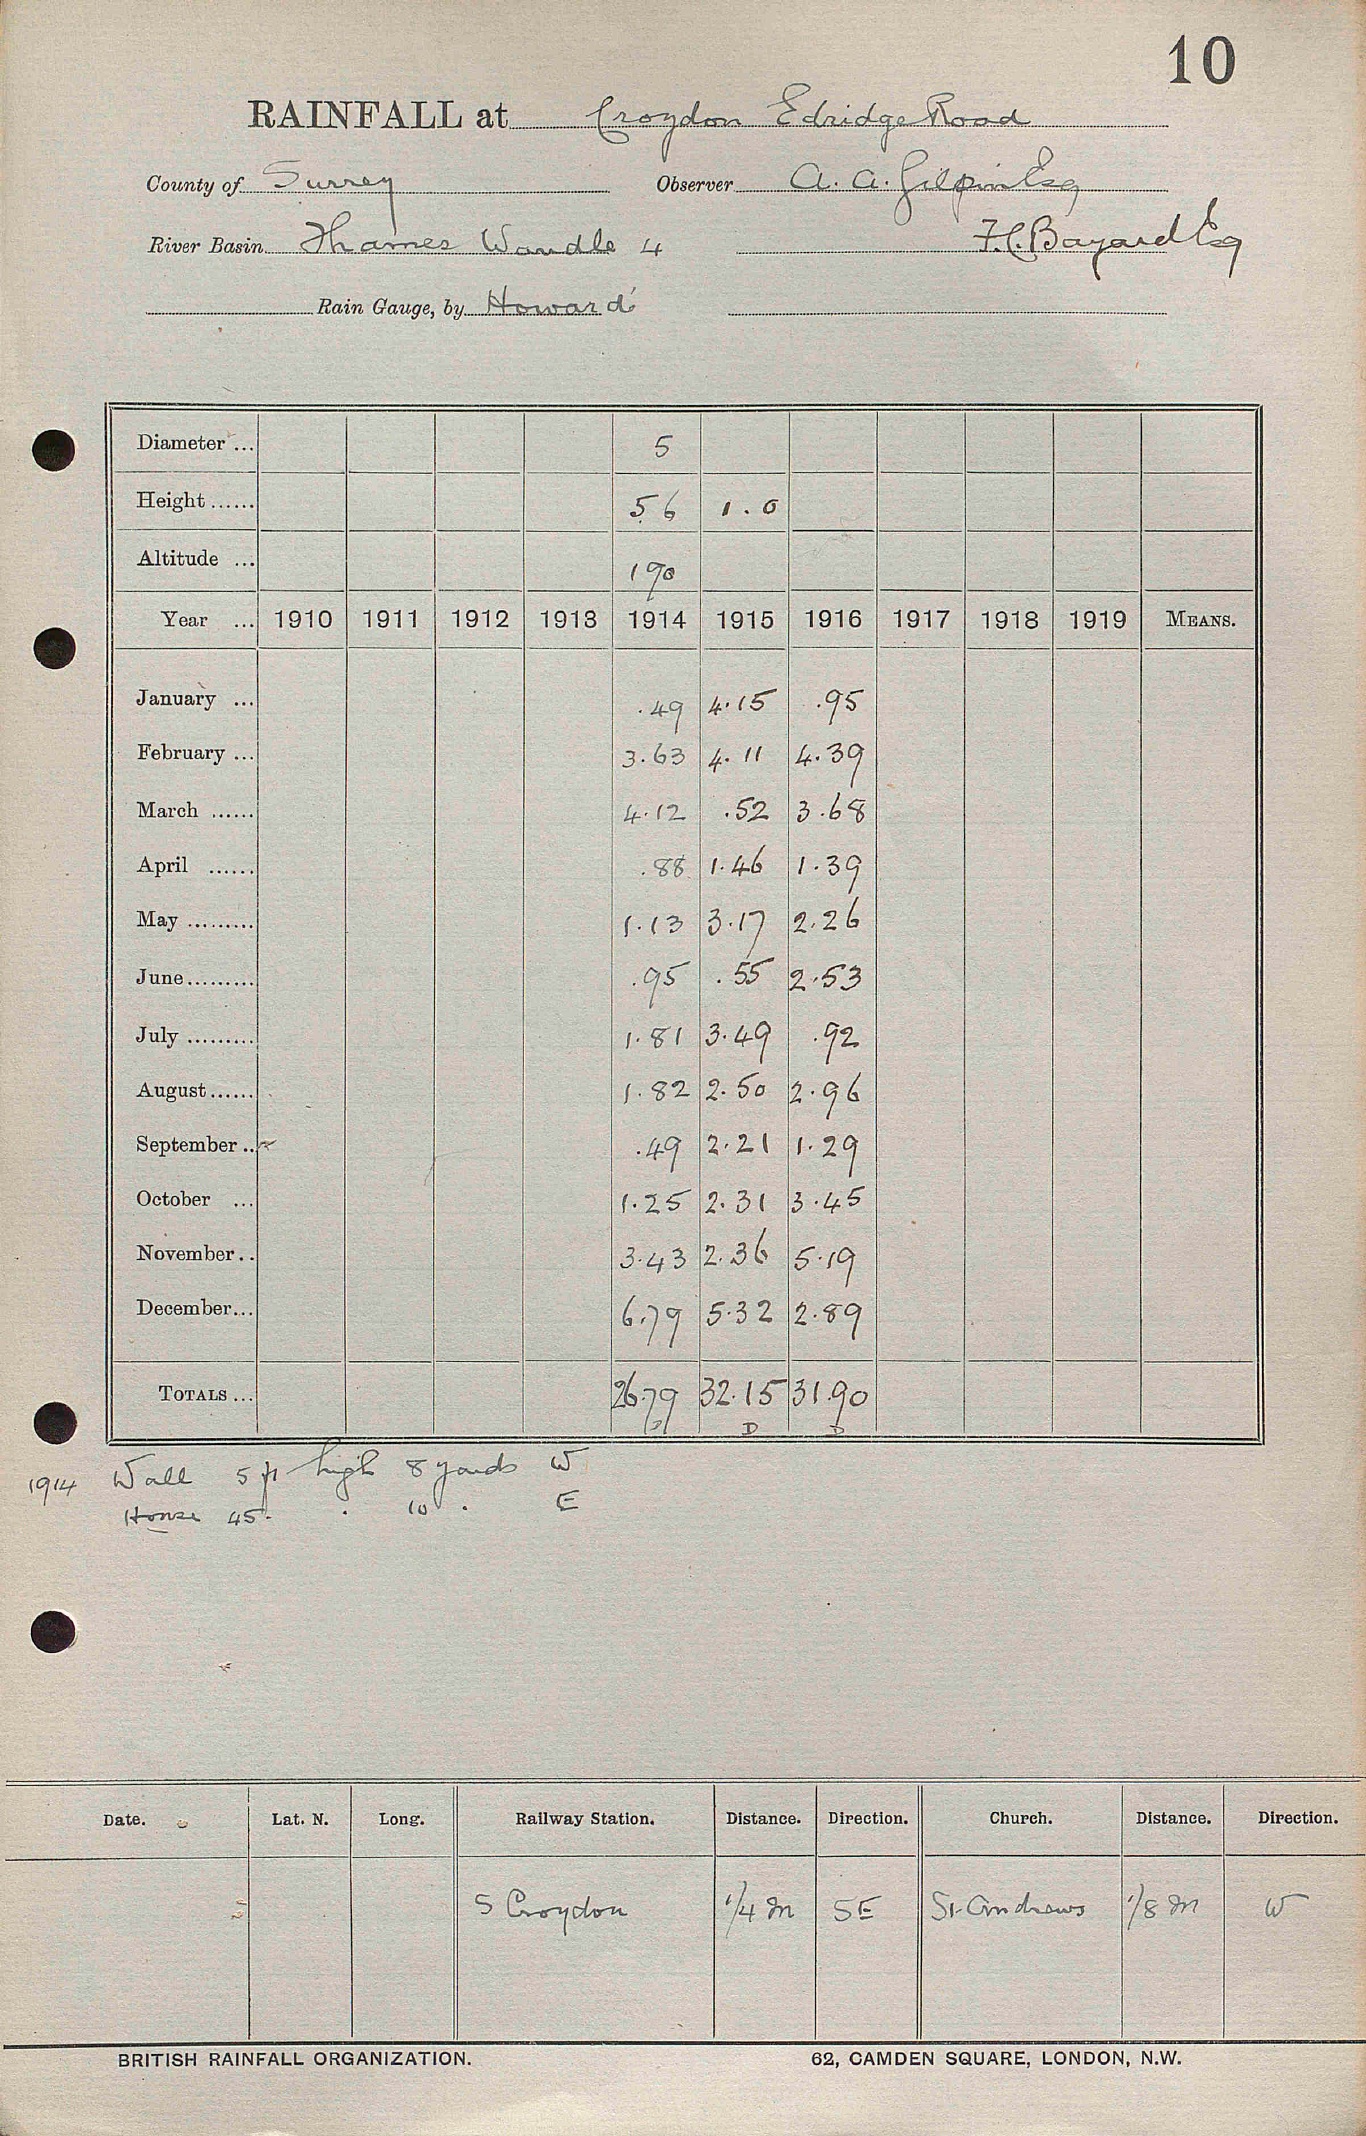 10
RAINFALL at Croydon Edridge Road
County of Surrey Observer A. A. Gilpin Esq
River Basin Thames Wandle 4 F.C. Bayard Esq
Rain Gauge, by Howard
Diameter ... 5
Height ...... 5 6 1.0
Altitude ... 190
Year ... 1910 1911 1912 1913 1914 1915 1916 1917 1918 1919 MEANS.
January ... .49 4.15 .95
February ... 3.63 4.11 4.39
March ...... 4.12 .52 3.68
April ...... .88 1.46 1.39
May ......... 1.13 3.17 2.26
June ......... .95 .55 2.53
July ......... 1.81 3.49 .92
August ...... 1.82 2.50 2.96
September .. .49 2.21 1.29
October ... 1.25 2.31 3.45
November .. 3.43 2.36 5.19
December ... 6.79 5.32 2.89
TOTALS ... 26.79 32.15 31.90
D D D
1914 Wall 5 ft high 8 yards W
House 45 . . 10 . E
Date. Lat. N. Long. Railway Station. Distance. Direction. Church. Distance. Direction.
S Croydon 1/4 m SE St Andrews 1/8 m W
BRITISH RAINFALL ORGANIZATION. 62, CAMDEN SQUARE, LONDON, N.W.